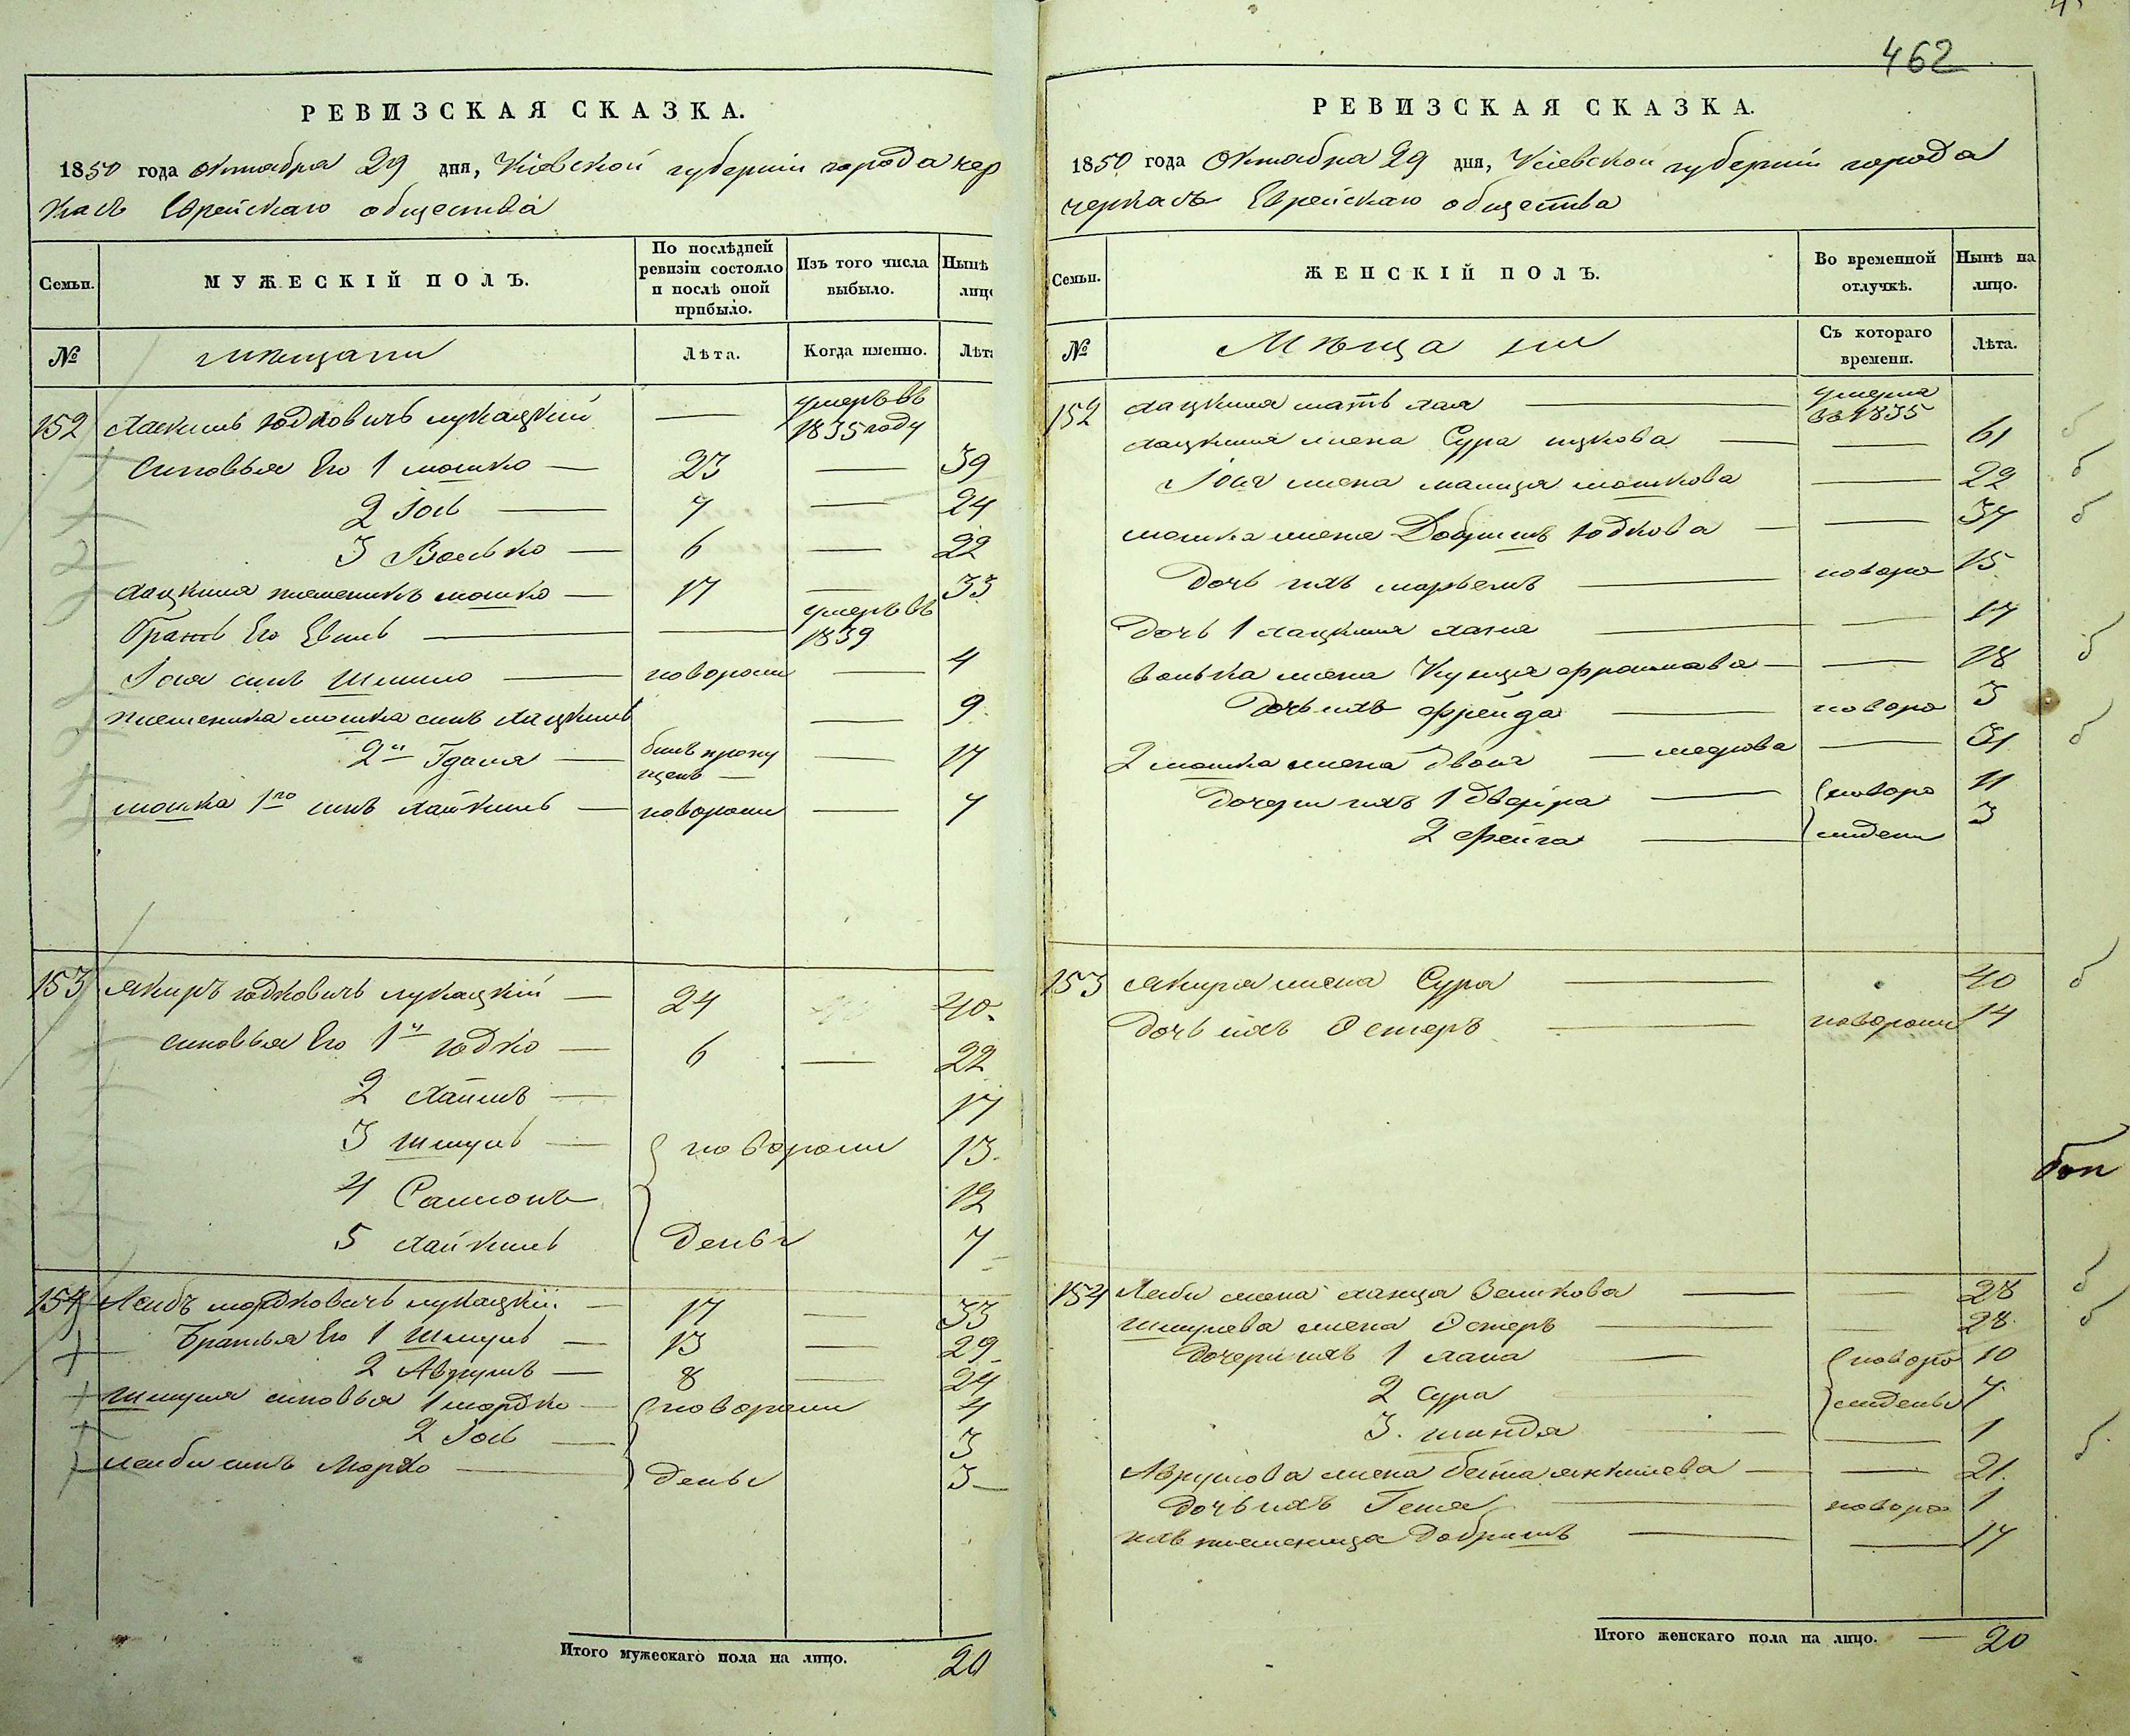 РЕВИЗСКАЯ СКАЗКА.
1850 года октября 29 дня, Кіевской губерніи города чер
касъ Еврейскаго общества
Семьи.
МУЖЕСКІЙ ПОЛЪ.
По послѣдней ревизіи состояло и послѣ оной прибыло.
Изъ того числа выбыло.
Нынѣ лицо
№
мещани
Лѣта.
Когда именно.
Лѣта
152 Хацкиль Юдковичъ лукацкій — умеръ въ 1835 году
Синовья Его 1 мошко — 23 — 39
2 Іось — 7 — 24
3 Волько — 6 — 22
Хацкиля племеникъ мошко — 17 — 33
братъ Его — — умеръ въ 1839
Іося синъ Шлиомо — новорожи — 4
племеника мошка синъ Хацкиль — 9
2й — билъ пропу щенъ — — 17
мошка 1го синъ Хайкиль — новорожи — 7
153 Якиръ Юдковичъ лукацкій — 24 40
синовья Его 1й Юдко — 6 — 22
2 Хаимъ — 17
3 Шмуль — новорожи 13
4 Самионъ 12
5 Хайкиль денъи 7
154 Лейбъ мордковичъ лукацкій — 17 — 33
Братья Его 1 Шмуль — 13 — 29
2 Аврумъ — 8 — 24
Шмуля синовья 1 мордко — новорожи 4
2 Іось — 3
лейби синъ Мордко — денъи 3
Итого мужескаго пола на лицо. 20
462
РЕВИЗСКАЯ СКАЗКА.
1850 года Октября 29 дня, Кіевской губерніи города
черкасъ Еврейскаго общества
Семьи.
ЖЕНСКІЙ ПОЛЪ.
Во временной отлучкѣ.
Нынѣ на лицо.
№
Мѣщани
Съ котораго времени.
Лѣта.
152 Хацкиля мать Хая — умерла въ 1835
Хацкиля жена Сура ицкова — — 61
Іося жена малица мошкова — 22
мошка жена Добришъ Юдкова — — 37
Дочь ихъ марьемъ — новоро 15
Дочь 1 Хацкиля Хана — — 17
волька жена Куница фроимова — — 18
Дочь ихъ фрейда — новоро 3
2 мошка жена двоия — меерова — 31
дочери ихъ 1 двейра — новоро 11
2 Фейга — жидени 3
153 Якира жена Сура — 40
Дочь ихъ Остеръ — новорожи 14
154 Лейби жена Ханца Зеликова — — 28
Шмулева жена Остеръ — — 28
Дочери ихъ 1 Хана — новоро 10
2 Сура жиденъи 7
3. шинда — 1
Аврумова жена бейла янкилева — — 21
дочь ихъ Геня — новоро 1
ихъ племеница Добришъ — — 17
Итого женскаго пола на лицо. — 20